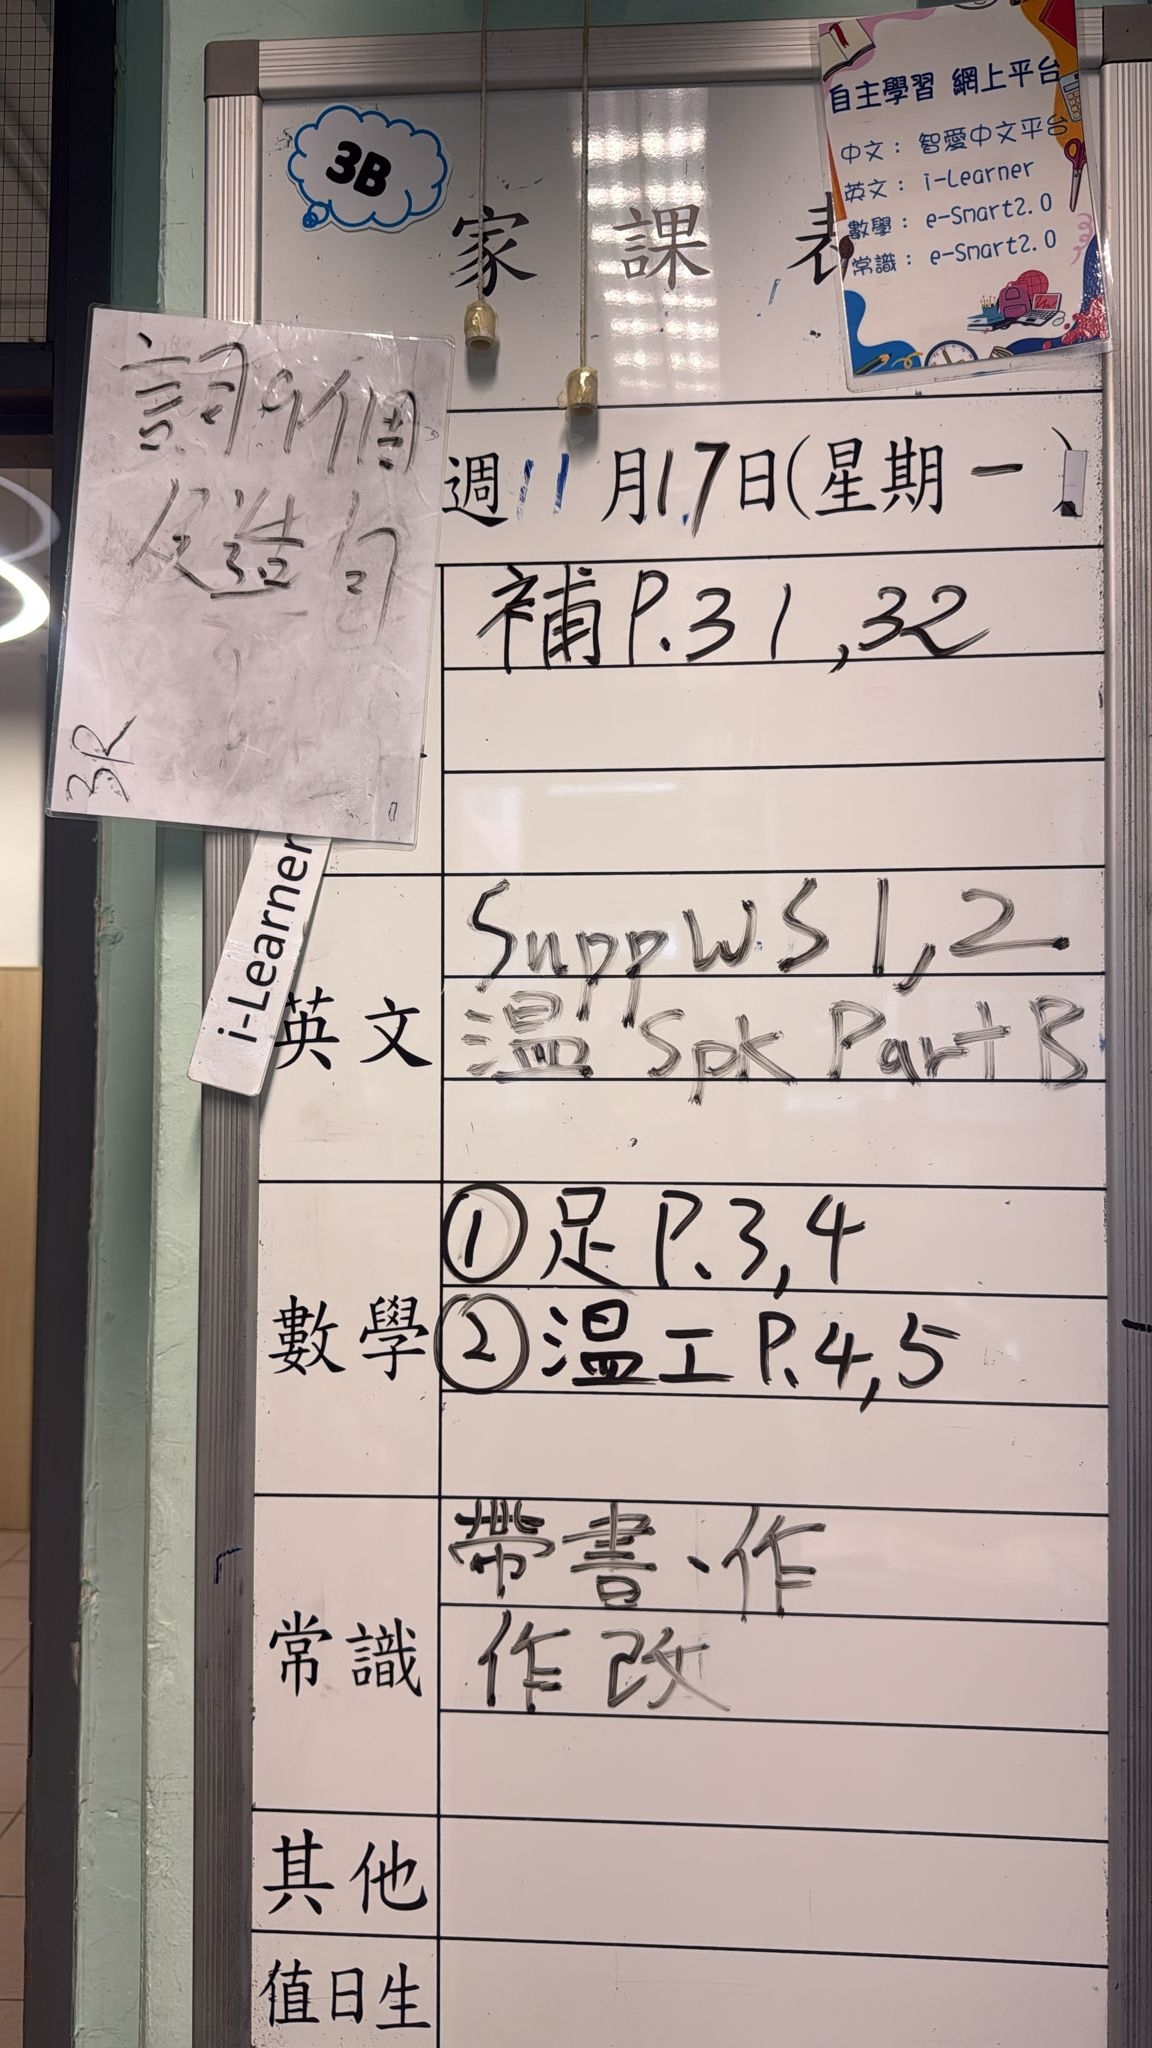 3B
家課表
自主學習 網上平台
中文：智愛中文平台
英文：i-Learner
數學：e-Smart2.0
常識：e-Smart2.0
詞9個
造句
3R
i-Learner
週11月17日(星期一)
補P.31,32
英文
Supp WS 1,2
溫 Spk Part B
數學
①足P.3,4
②溫工P.4,5
常識
帶書、作
作改
其他
值日生